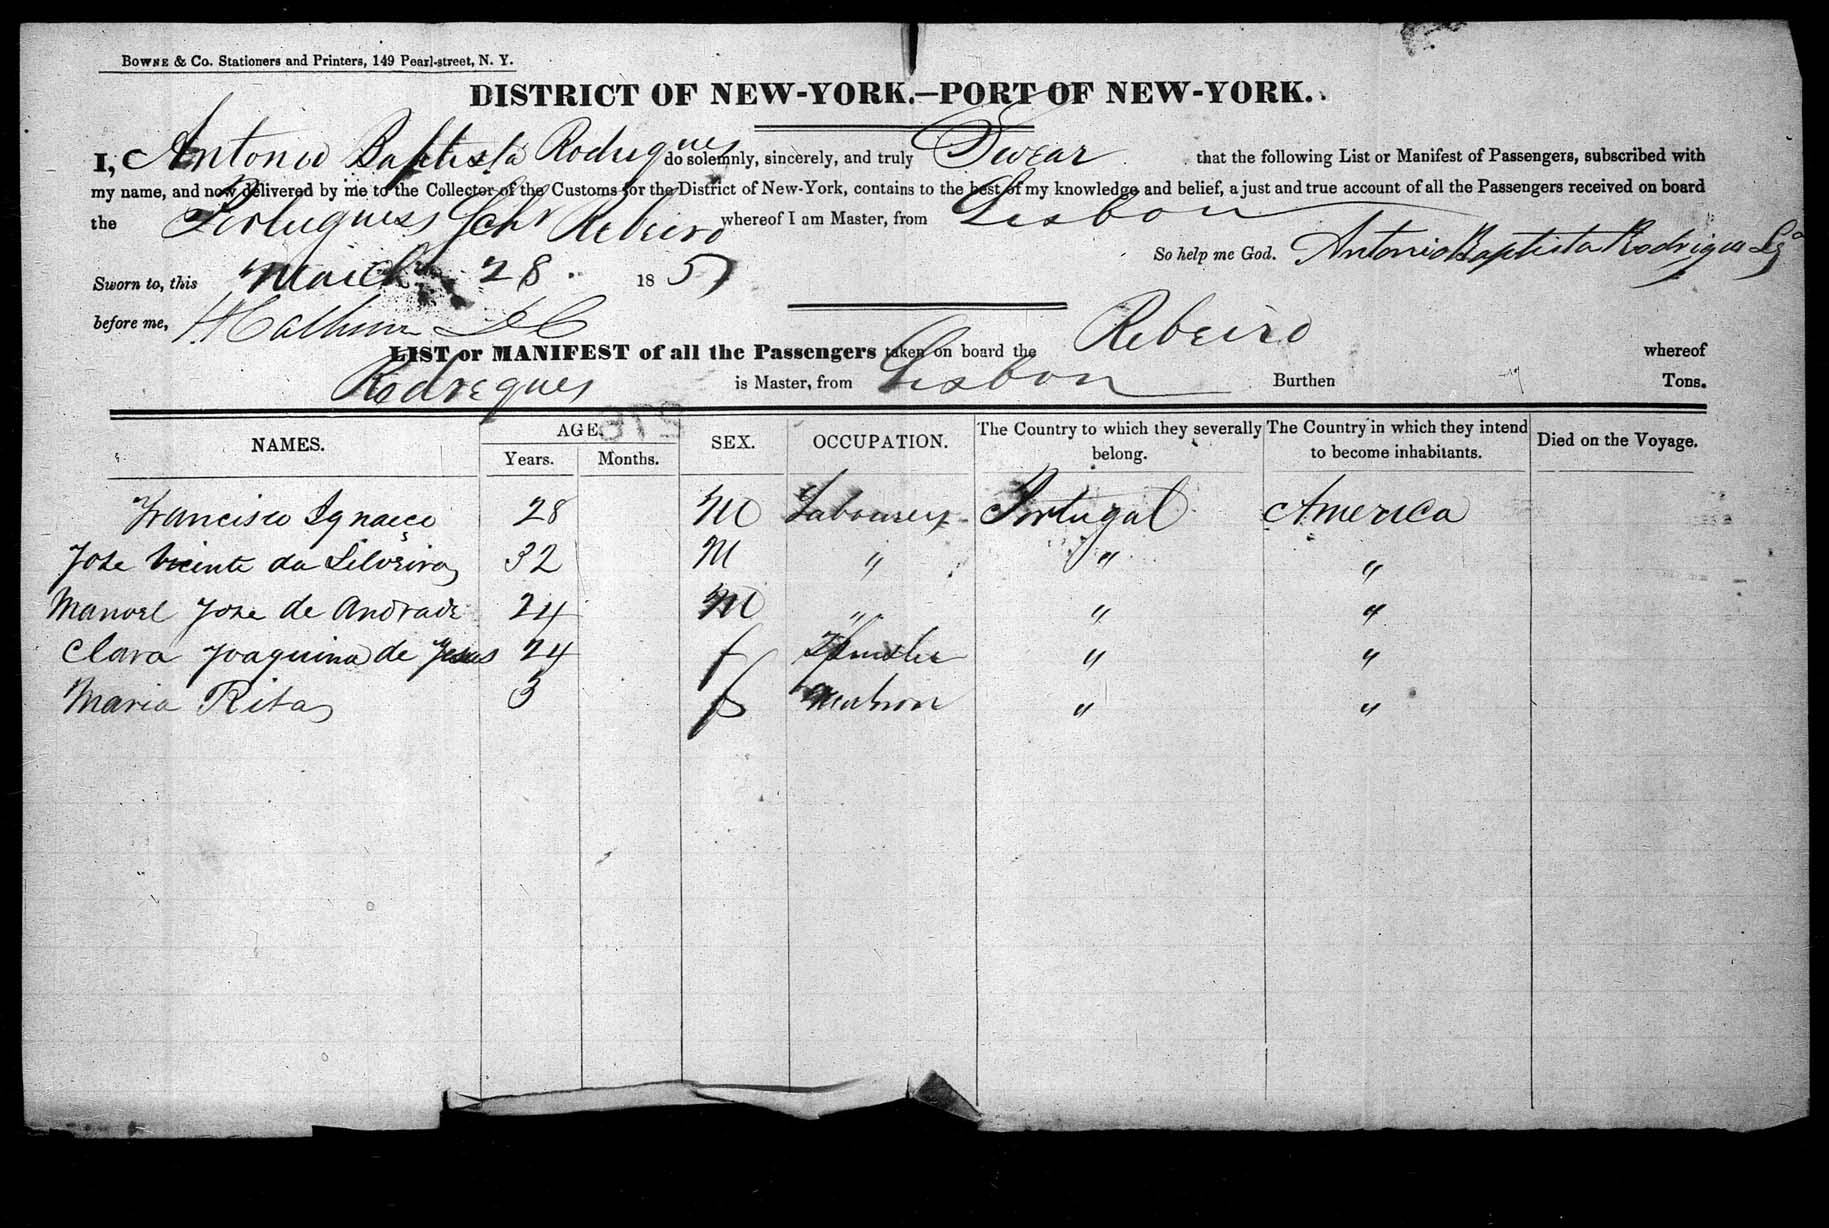 BOWNE & Co. Stationers and Printers, 149 Pearl-street, N. Y.
DISTRICT OF NEW-YORK.—PORT OF NEW-YORK.
I, Antonio Baptista Rodrigues do solemnly, sincerely, and truly Swear that the following List or Manifest of Passengers, subscribed with
my name, and now delivered by me to the Collector of the Customs for the District of New-York, contains to the best of my knowledge and belief, a just and true account of all the Passengers received on board
the Portuguess Schr Rebeiro whereof I am Master, from Lisbon
So help me God. Antonio Baptista Rodrigues
Sworn to, this March 28 1857
before me, H Calhoun D C
LIST or MANIFEST of all the Passengers taken on board the Rebeiro whereof
Rodregues is Master, from Lisbon Burthen Tons.
NAMES. AGE. SEX. OCCUPATION. The Country to which they severally belong. The Country in which they intend to become inhabitants. Died on the Voyage.
Years. Months.
Francisco Ignacio 28 M Labourer Portugal America
Jose Vicinte da Silveira 32 M " " "
Manoel Jose de Andrade 24 M " " "
Clara Joaquina de Jesus 24 f " "
Maria Rita 3 f " "